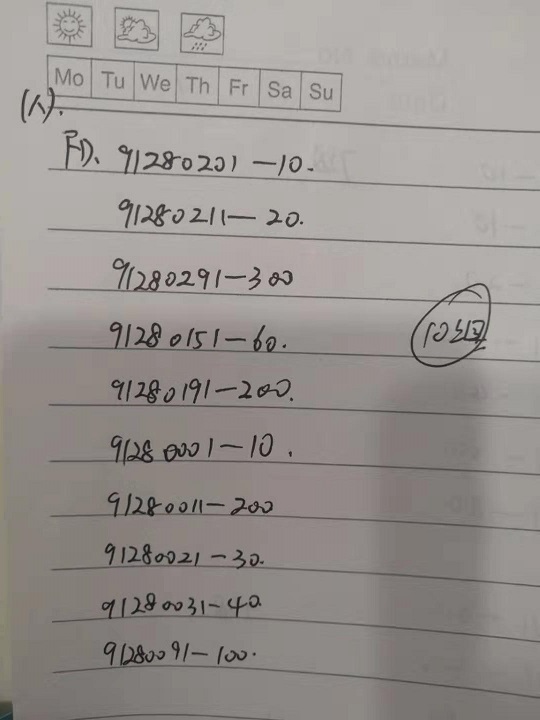 Mo Tu We Th Fr Sa Su
(人).
FD、91280201—10.
91280211—20.
91280291—300
91280151—60.
91280191—200.
91280001—10.
91280011—200
91280021—30.
91280031—40.
91280091—100.
10组